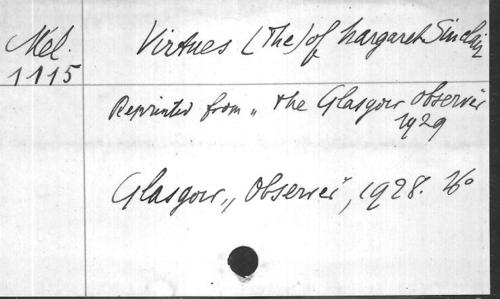 Mel.
1115
Virtues (The) of Margaret Sinclair
Reprinted from „ the Glasgow Observer
1929
Glasgow, „Observer", 1928. 16°